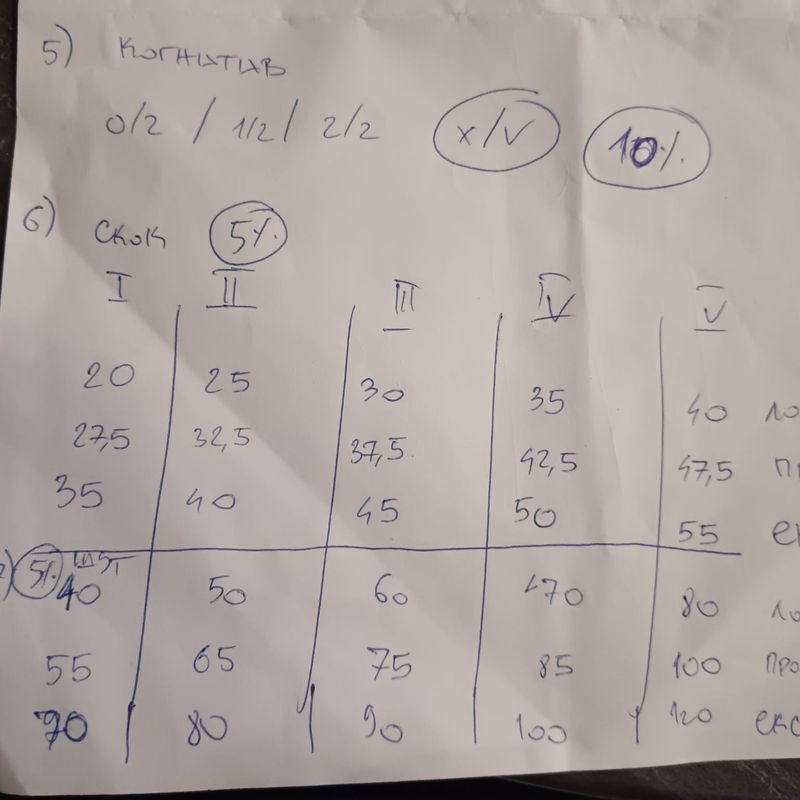 5) КОГНИТИВ
0/2 / 1/2 / 2/2 X/V 10%
6) СКОК 5%
I II III IV V
20 25 30 35 40 ЛО
27,5 32,5 37,5 42,5 47,5 П
35 40 45 50 55 ЕК
5%
40 50 60 70 80 ЛО
55 65 75 85 100 ПРО
70 80 90 100 120 ЕКС